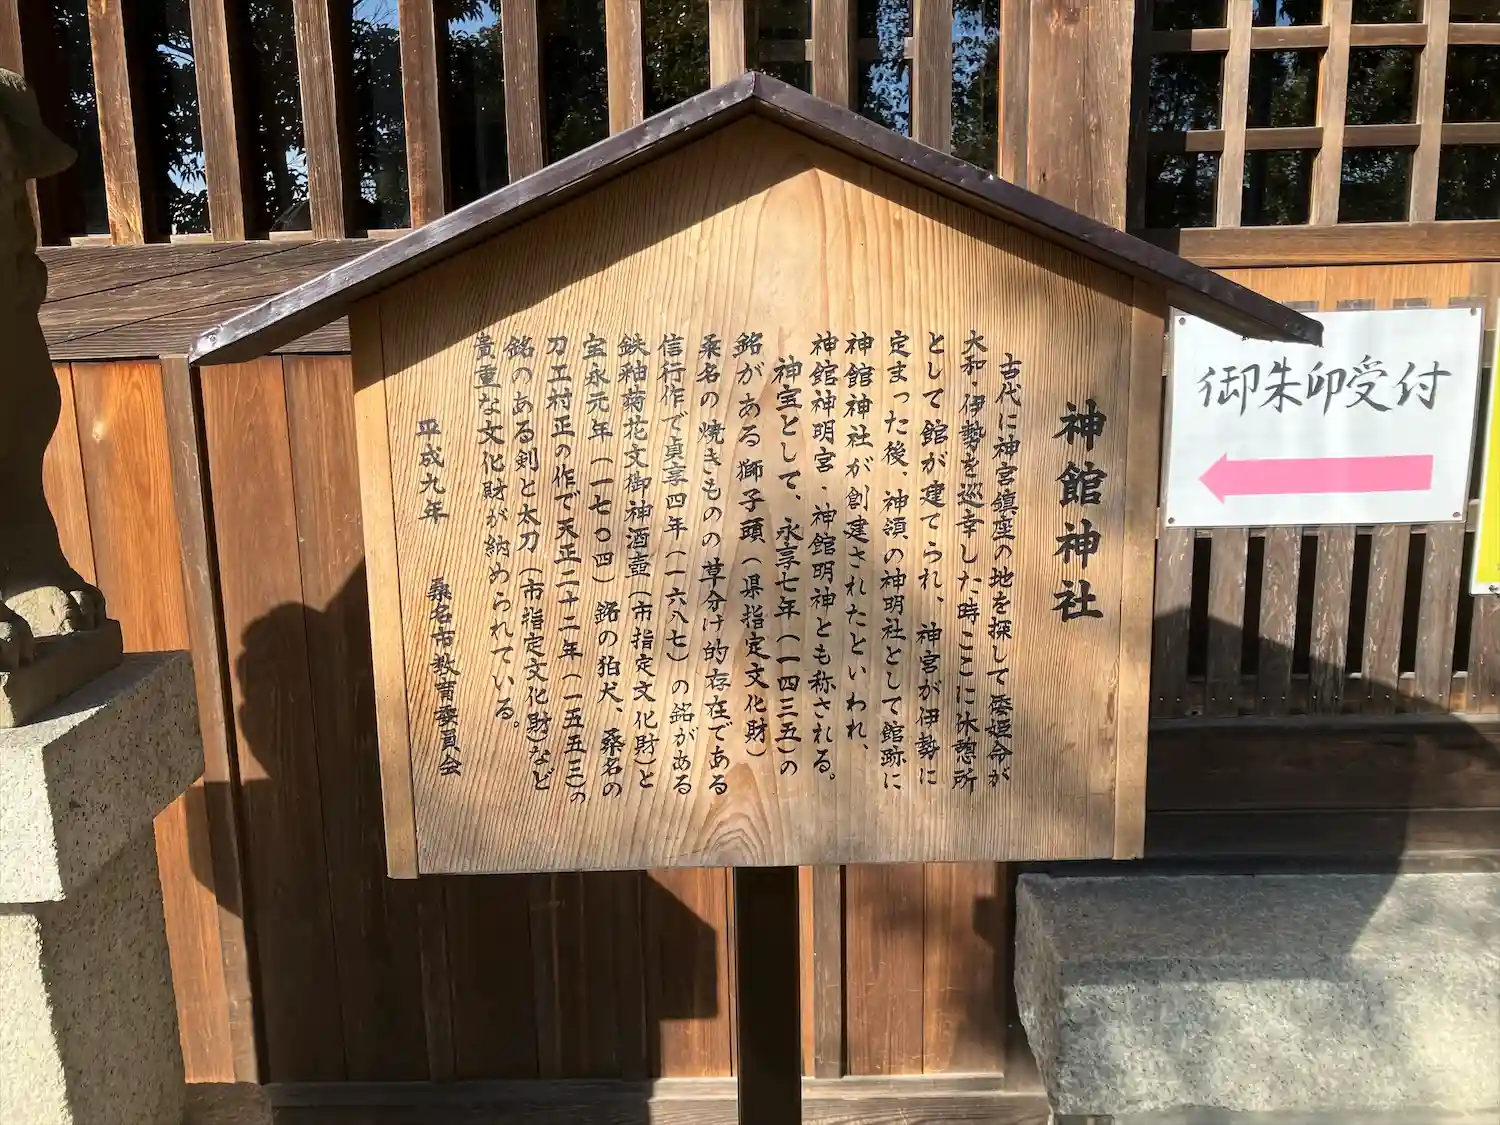 神館神社
古代に神宮鎮座の地を探して倭姫命が
大和・伊勢を巡幸した時ここに休憩所
として館が建てられ、神宮が伊勢に
定まった後、神領の神明社として館跡に
神館神社が創建されたといわれ、
神館神明宮、神館明神とも称される。
神宝として、永享七年(一四三五)の
銘がある獅子頭(県指定文化財)
桑名の焼きものの草分け的存在である
信行作で貞享四年(一六八七)の銘がある
鉄釉菊花文御神酒壺(市指定文化財)と
宝永元年(一七〇四)銘の狛犬、桑名の
刀工村正の作で天正二十二年(一五五三)の
銘のある剣と太刀(市指定文化財)など
貴重な文化財が納められている。
平成九年 桑名市教育委員会
御朱印受付